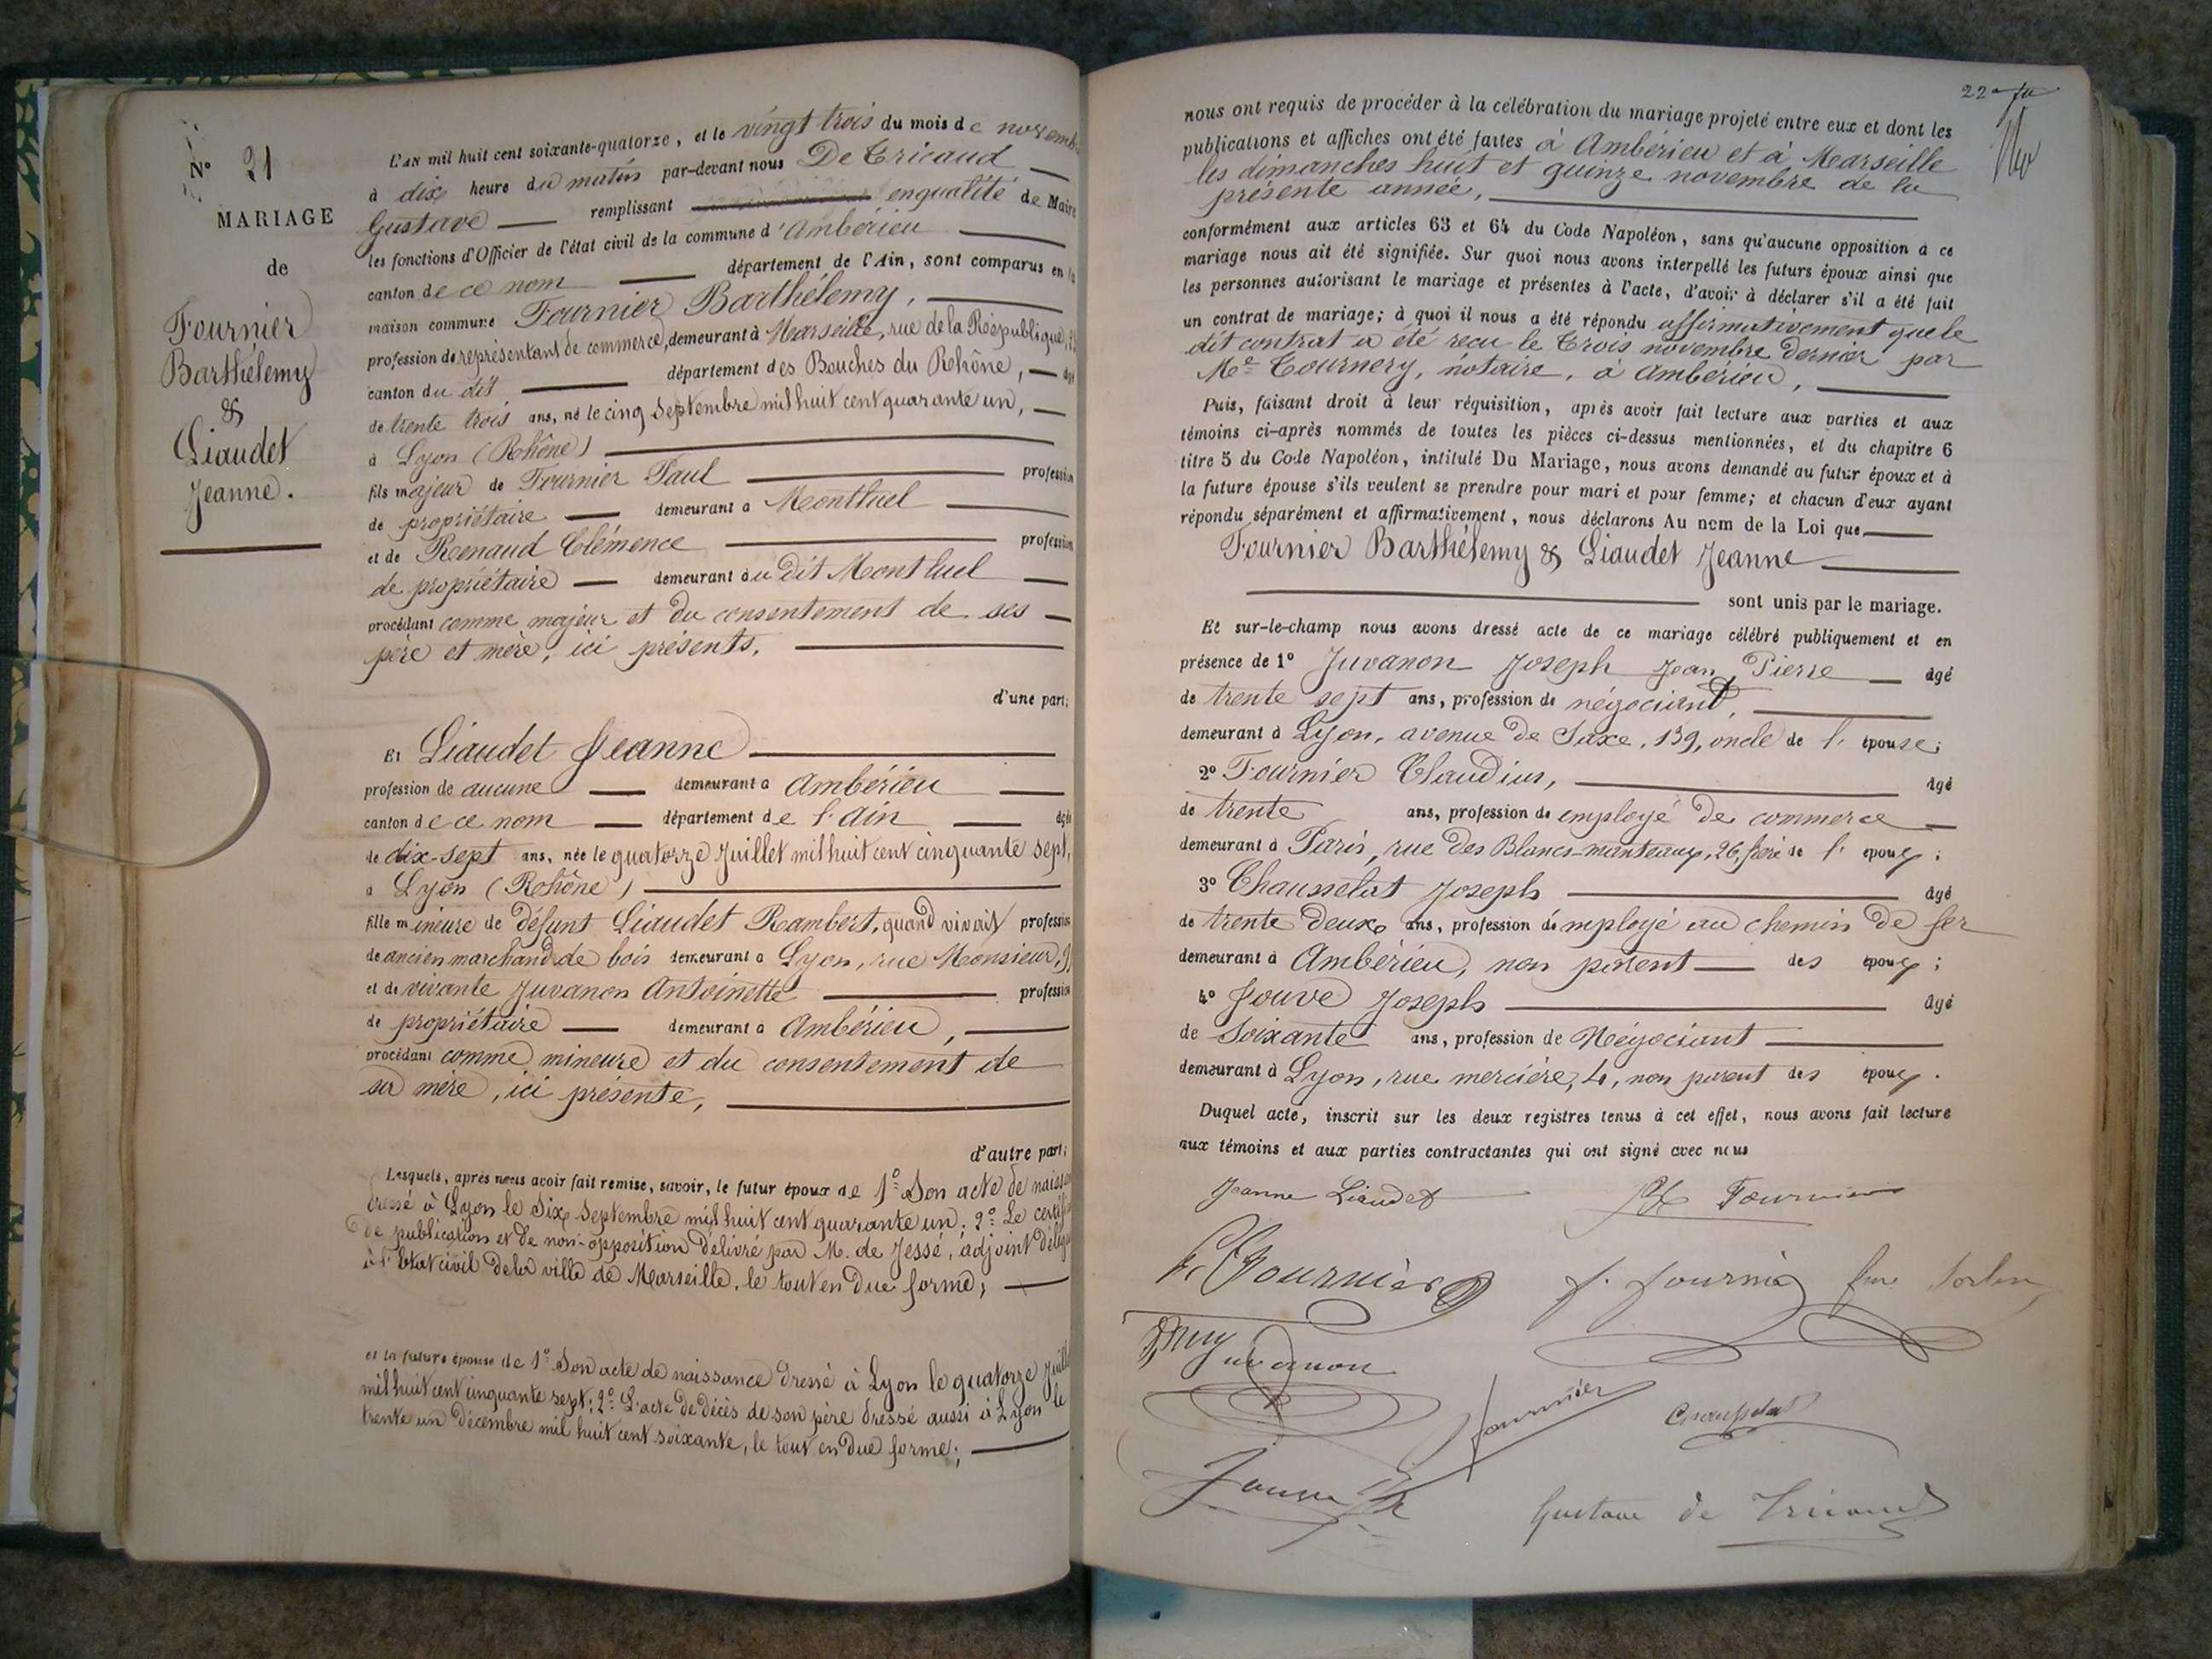 N° 21
MARIAGE
de
Fournier
Barthélemy
&
Liaudet
Jeanne.
L'an mil huit cent soixante-quatorze, et le vingt trois du mois de novemb
à dix heure du matin par-devant nous De Tricaud
Gustave remplissant en qualité de Maire
les fonctions d'Officier de l'état civil de la commune d'Ambérieu
canton de ce nom département de l'Ain, sont comparus en la
maison commune Fournier Barthélemy,
profession de représentant de commerce, demeurant à Marseille, rue de la République,
canton du dit département des Bouches du Rhône, âgé
de trente trois ans, né le cinq Septembre mil huit cent quarante un,
à Lyon (Rhône)
fils majeur de Fournier Paul profession
de propriétaire demeurant à Montluel
et de Renaud Clémence profession
de propriétaire demeurant au dit Montluel
procédant comme majeur et du consentement de ses
père et mère, ici présents,
d'une part;
Et Liaudet Jeanne
profession de aucune demeurant à Ambérieu
canton de ce nom département de l'Ain âgée
de dix-sept ans, née le quatorze Juillet mil huit cent cinquante sept,
à Lyon (Rhône)
fille mineure de défunt Liaudet Rambert, quand vivait profession
de ancien marchand de bois demeurant à Lyon, rue Monsieur, 9,
et de vivante Juvanon Antoinette profession
de propriétaire demeurant à Ambérieu,
procédant comme mineure et du consentement de
sa mère, ici présente,
d'autre part;
Lesquels, après nous avoir fait remise, savoir, le futur époux de 1° Son acte de naiss
dressé à Lyon le Six Septembre mil huit cent quarante un; 2° Le certif
de publications et de non-opposition délivré par M. de Jessé, adjoint délégu
à l'Etat civil de la ville de Marseille, le tout en due forme;
et la future épouse de 1° Son acte de naissance dressé à Lyon le quatorze Juill
mil huit cent cinquante sept; 2° L'acte de décès de son père dressé aussi à Lyon le
trente un Décembre mil huit cent soixante, le tout en due forme;
22
nous ont requis de procéder à la célébration du mariage projeté entre eux et dont les
publications et affiches ont été faites à Ambérieu et à Marseille
les dimanches huit et quinze novembre de la
présente année,
conformément aux articles 63 et 64 du Code Napoléon, sans qu'aucune opposition à ce
mariage nous ait été signifiée. Sur quoi nous avons interpellé les futurs époux ainsi que
les personnes autorisant le mariage et présentes à l'acte, d'avoir à déclarer s'il a été fait
un contrat de mariage; à quoi il nous a été répondu affirmativement que le
dit contrat a été reçu le trois novembre dernier par
Me Tournery, notaire, à Ambérieu,
Puis, faisant droit à leur réquisition, après avoir fait lecture aux parties et aux
témoins ci-après nommés de toutes les pièces ci-dessus mentionnées, et du chapitre 6
titre 5 du Code Napoléon, intitulé Du Mariage, nous avons demandé au futur époux et à
la future épouse s'ils veulent se prendre pour mari et pour femme; et chacun d'eux ayant
répondu séparément et affirmativement, nous déclarons Au nom de la Loi que
Fournier Barthélemy & Liaudet Jeanne
sont unis par le mariage.
Et sur-le-champ nous avons dressé acte de ce mariage célébré publiquement et en
présence de 1° Juvanon Joseph Jean Pierre âgé
de trente sept ans, profession de négociant,
demeurant à Lyon, avenue de Saxe, 139, oncle de l'épouse;
2° Fournier Claudius, âgé
de trente ans, profession de employé de commerce
demeurant à Paris, rue des Blancs-manteaux, 26, frère de l'époux;
3° Chausselat Joseph âgé
de trente deux ans, profession d'employé au chemin de fer
demeurant à Ambérieu, non parent des époux;
4° Jouve Joseph âgé
de Soixante ans, profession de Négociant
demeurant à Lyon, rue mercière, 4, non parent des époux.
Duquel acte, inscrit sur les deux registres tenus à cet effet, nous avons fait lecture
aux témoins et aux parties contractantes qui ont signé avec nous
Jeanne Liaudet Fournier
Fournier J. Fournier
Juvanon
Fournier Chausselat
Jouve
Gustave de Tricaud